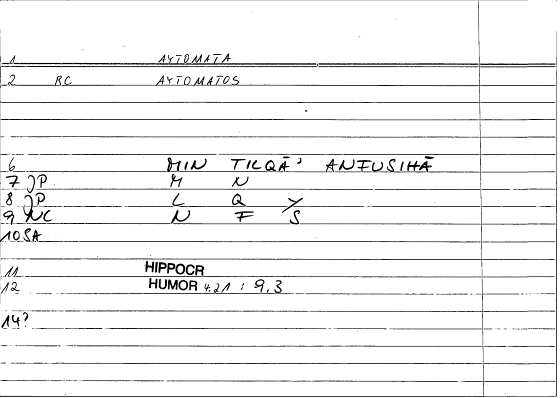 1 AYTOMATA
2 RC AYTOMATOS
6 MIN TILQĀ' ANFUSIHĀ
7 JP M N
8 JP L Q Y
9 NC N F S
10 SA
11 HIPPOCR
12 HUMOR 4.21 : 9.3
14?